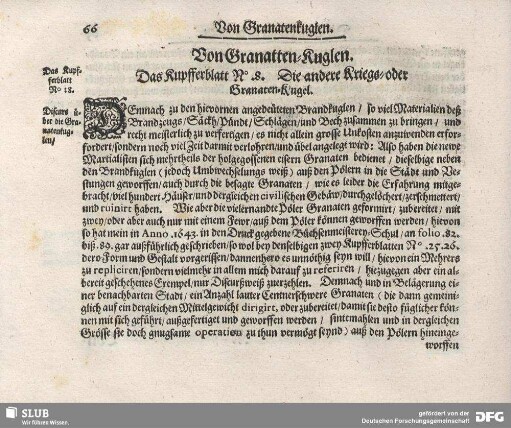 66
Von Granatenkuglen.
Von Granatten-Kuglen.
Das Kupf-
ferblatt
No 18.
Das Kupfferblatt No. 8. Die andere Kriegs- oder
Granaten-Kugel.
Discurs ü-
ber die Gra-
natenkug-
len/
DEmnach zu den hievornen angedeüteten Brandkuglen/ so viel Materialien deß
Brandzeugs/ Säckh/ Pündt/ Schlägen/ und Bech zusammen zu bringen/ und
recht meisterlich zu verfertigen/ es nicht allein grosse Unkosten anzuwenden erfor-
fordert/ sondern noch viel Zeit darmit verlohren/ und übel angelegt wird: Also haben die newe
Martialisten sich mehrtheils der holgegossenen eisern Granaten bedienet/ dieselbige neben
den Brandkuglen (jedoch Umbwechslungs weiß) auß den Pölern in die Städt und Ve-
stungen geworffen/ auch durch die besagte Granaten/ wie es leider die Erfahrung mitge-
bracht/ viel hundert Häuser/ und dergleichen civilischen Gebäw/ durchgelöchert/ zerschmettert/
und ruinirt haben. Wie aber die vielernandte Pöler Granaten geformirt/ zubereitet/ mit
zwey/ oder aber auch nur mit einem Fewr/ auß dem Pöler können geworffen werden/ hievon
so hat mein in Anno 1643. in den Druck gegebene Büchsenmeisterey-Schul/ an folio .82.
biß .89. gar außführlich geschrieben/ so wol bey denselbigen zwey Kupfferblatten No .25.26.
dero Form und Gestalt vorgerissen/ dannenhero es unnöthig seyn will/ hievon ein Mehrers
zu repliciren/ sondern vielmehr in allem mich darauf zu referiren/ hiezugegen aber ein al-
bereit geschehenes Exempel/ nur Discursweiß zuerzehlen. Demnach und in Belägerung ei-
ner benachbarten Stadt/ ein Anzahl lauter Centnerschwere Granaten (die dann gemein-
iglich auf ein dergleichen Mittelgewicht dirigirt, oder zubereitet/ damit sie desto füglicher kön-
nen mit sich geführt/ außgefertiget und geworffen werden/ sintemahlen und in dergleichen
Grösse sie doch gnugsame operation zu thun vermögt seynd) auß den Pölern hineinge-
worffen
SLUB
Wir führen Wissen.
gefördert von der
Deutschen Forschungsgemeinschaft
DFG